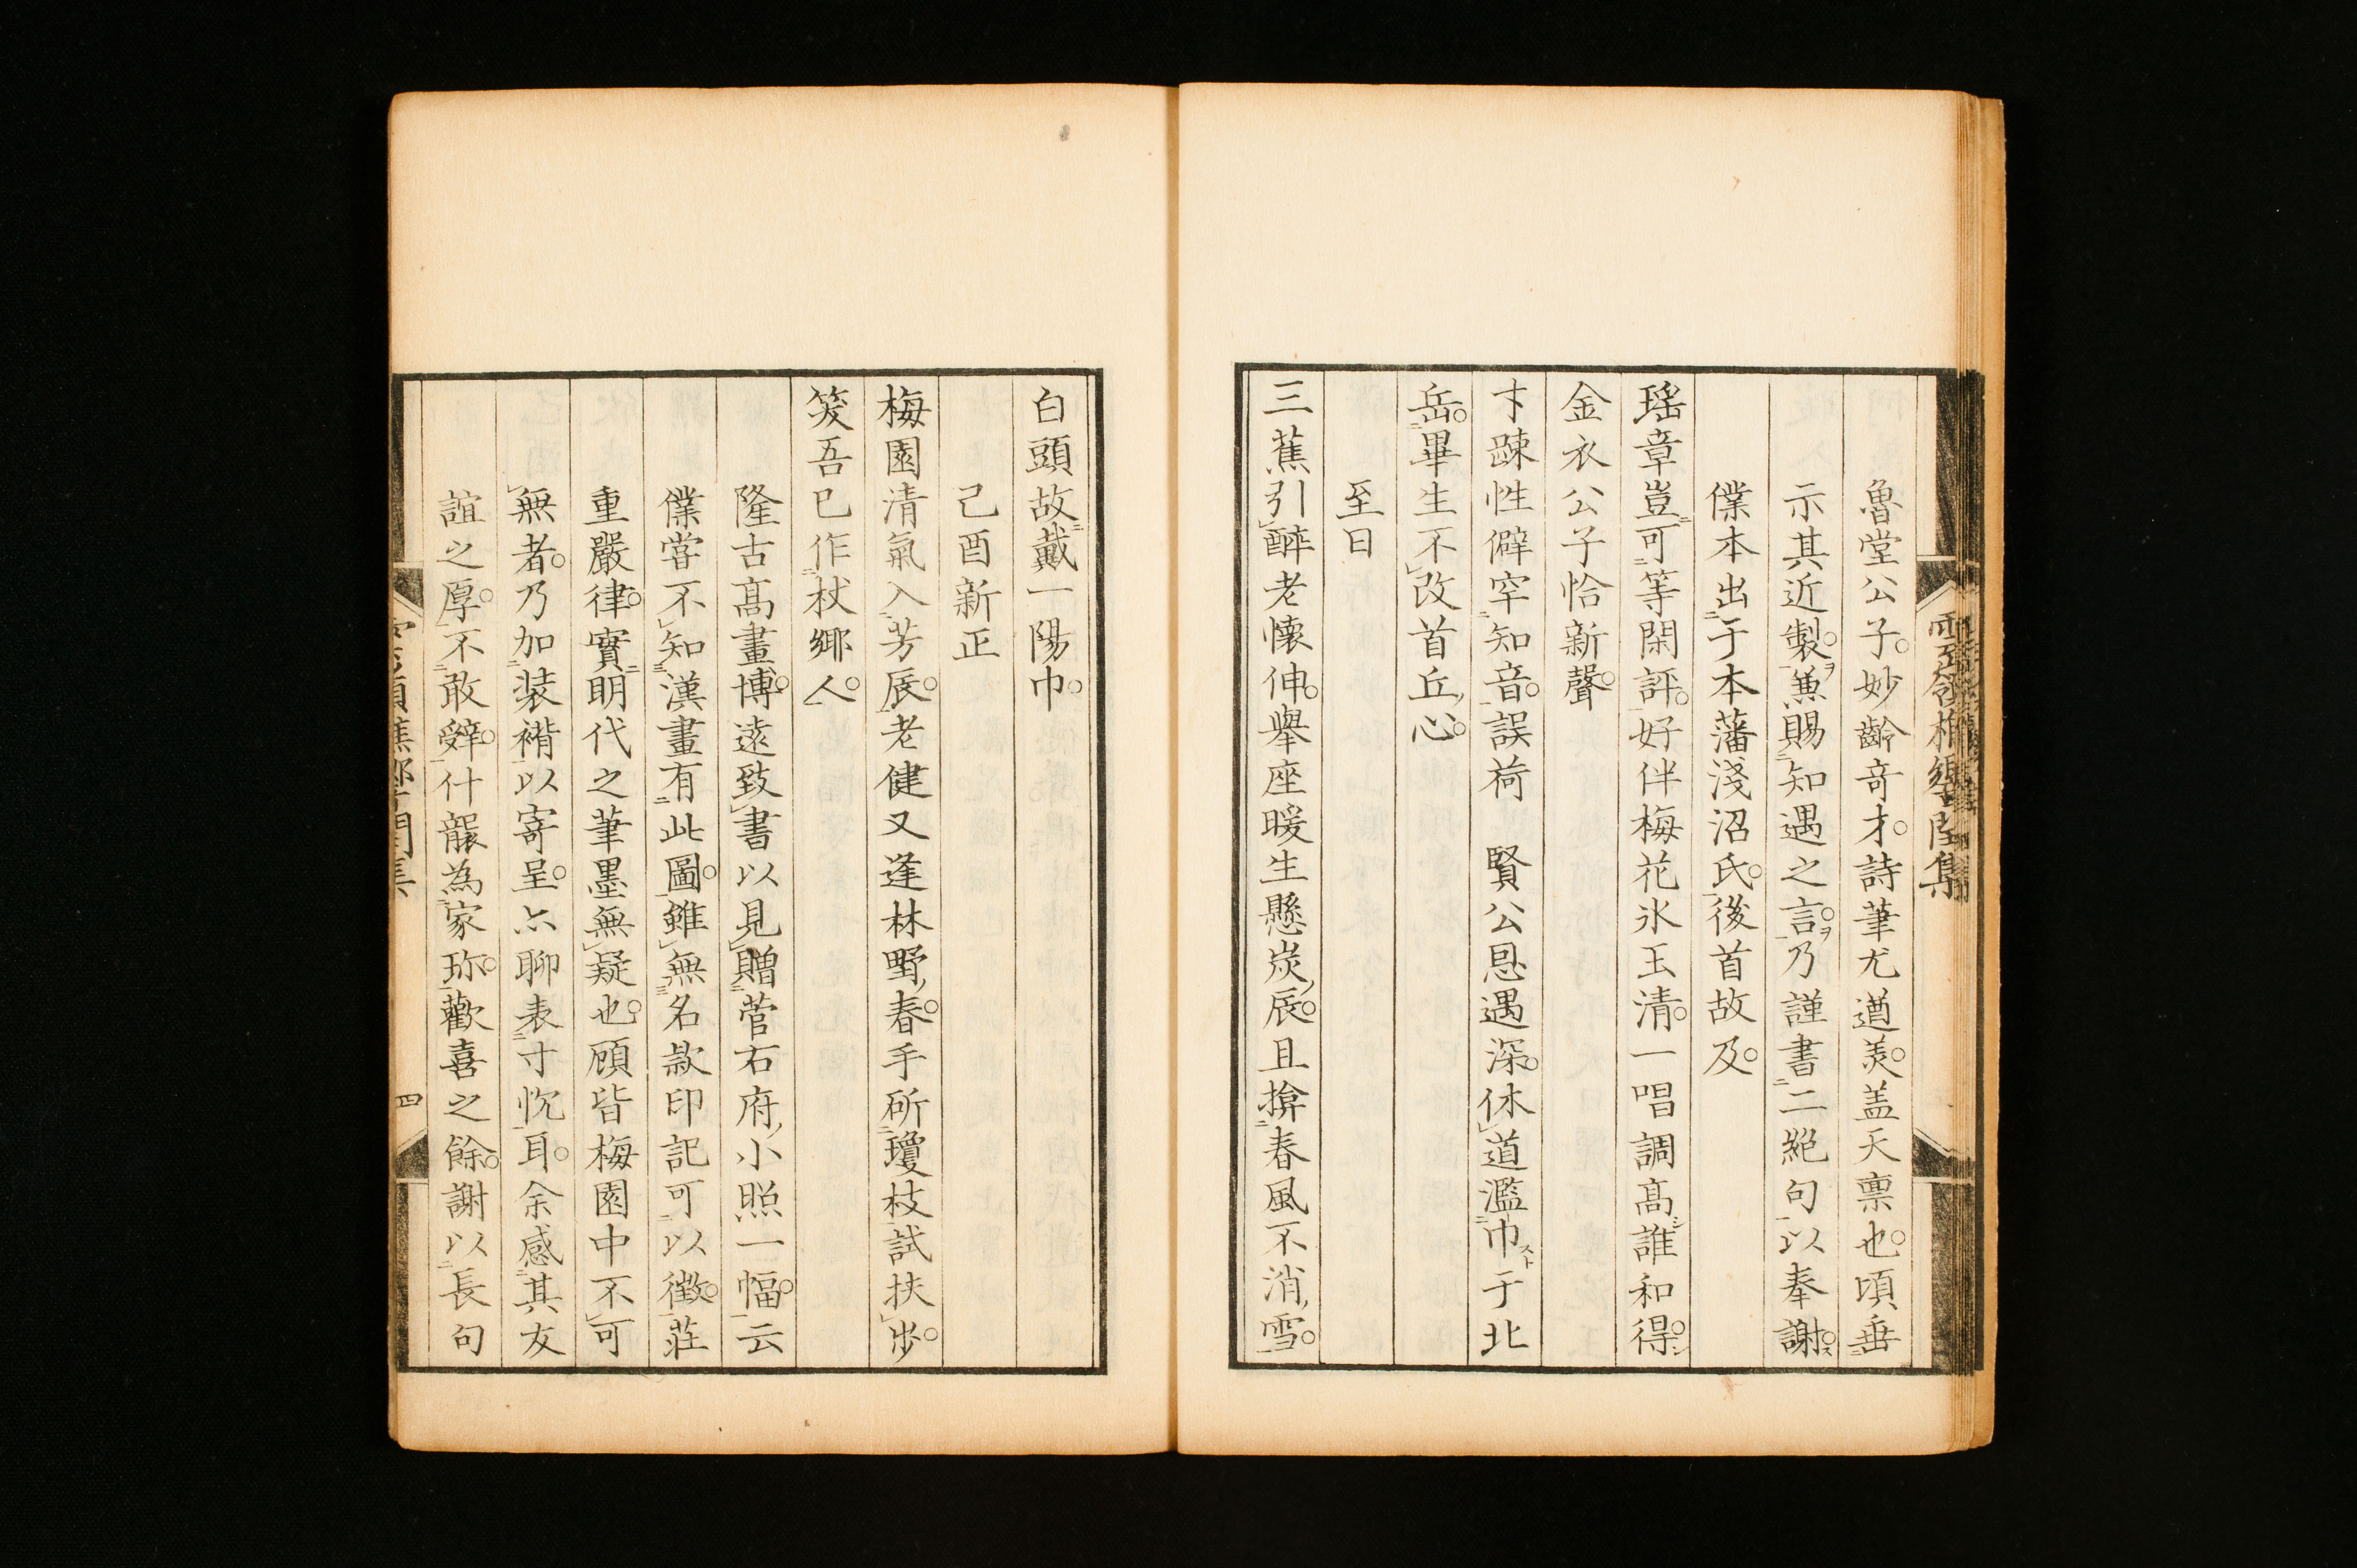 魯堂公子。妙齡奇才。詩筆尤遒美。盖天稟也。頃垂
示其近製。兼賜知遇之言。乃謹書二絕句以奉謝。
僕本出于本藩淺沼氏。後首故及。
瑤章豈可等閑評。好伴梅花氷玉清。一唱調髙誰和得。
金衣公子恰新聲。
才踈性僻罕知音。誤荷 賢公恩遇深。休道濫巾于北
岳。畢生不改首丘心。
至日
三蕉引醉老懷伸。舉座暖生懸炭辰。且揜春風不消雪。
白頭故戴一陽巾。
己酉新正
梅園清氣入芳辰。老健又逢林野春。手斫瓊枝試扶步。
笑吾已作杖鄉人。
隆古髙畫博。遠致書以見贈菅右府小照一幅。云
僕嘗不知漢畫有此圖。雖無名款印記可以徵。莊
重嚴律。實明代之筆墨無疑也。顧皆梅園中不可
無者。乃加装褙以寄呈。亦聊表寸忱耳。余感其友
誼之厚。不敢辤。什襲為家珎。歡喜之餘。謝以長句
四